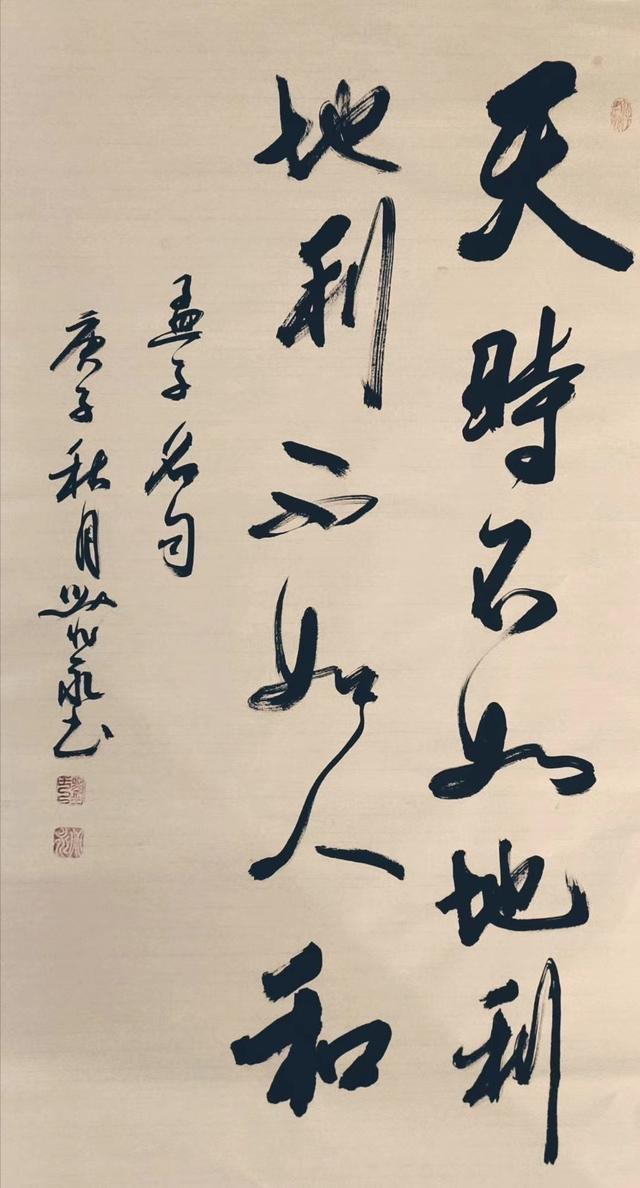 天時不如地利
地利不如人和
孟子名句
庚子秋月書